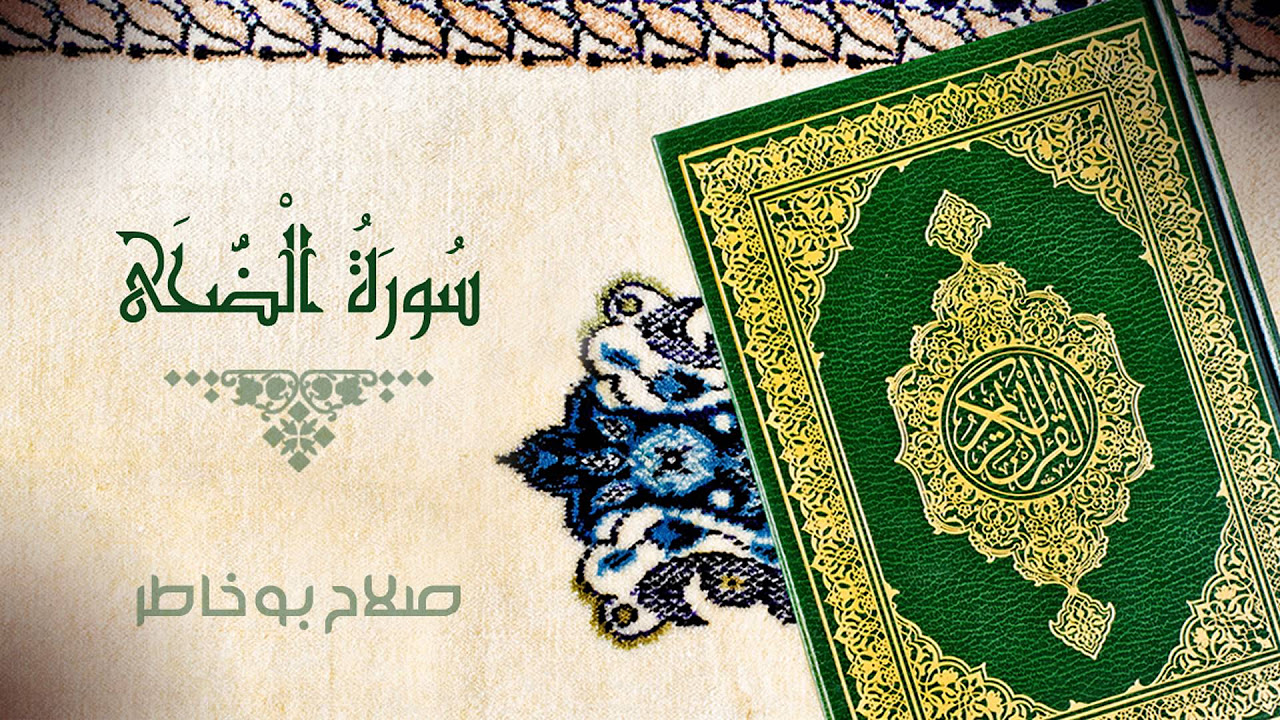 سُورَةُ الْضُّحَى
صلاح بو خاطر
القرآن الكريم